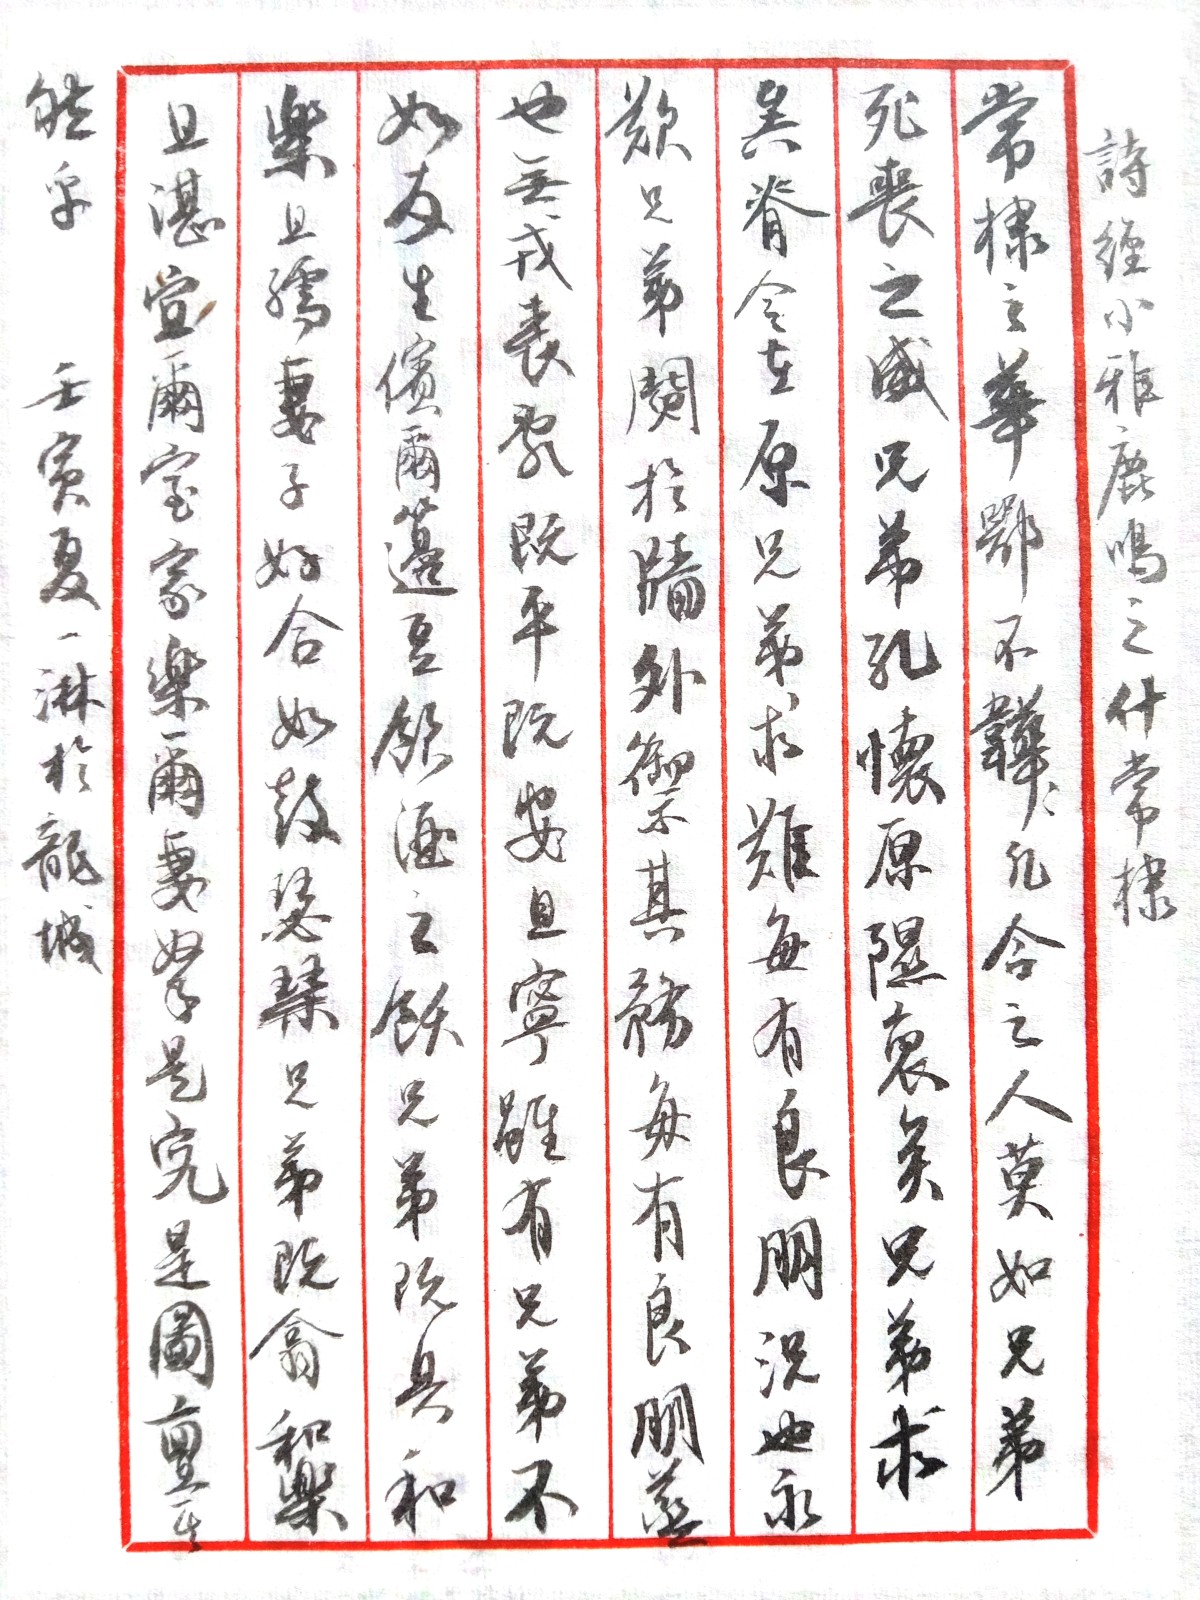 詩經小雅鹿鳴之什常棣
常棣之華鄂不韡〻凡今之人莫如兄弟
死喪之威兄弟孔懷原隰裒矣兄弟求
矣脊令在原兄弟求難每有良朋況也永
歎兄弟鬩於牆外禦其務每有良朋烝
也無戎喪亂既平既安且寧雖有兄弟不
如友生儐爾籩豆飲酒之飫兄弟既具和
樂且孺妻子好合如鼓瑟琴兄弟既翕和樂
且湛宜爾室家樂爾妻孥是究是圖亶其
然乎 壬寅夏一淋於龍城